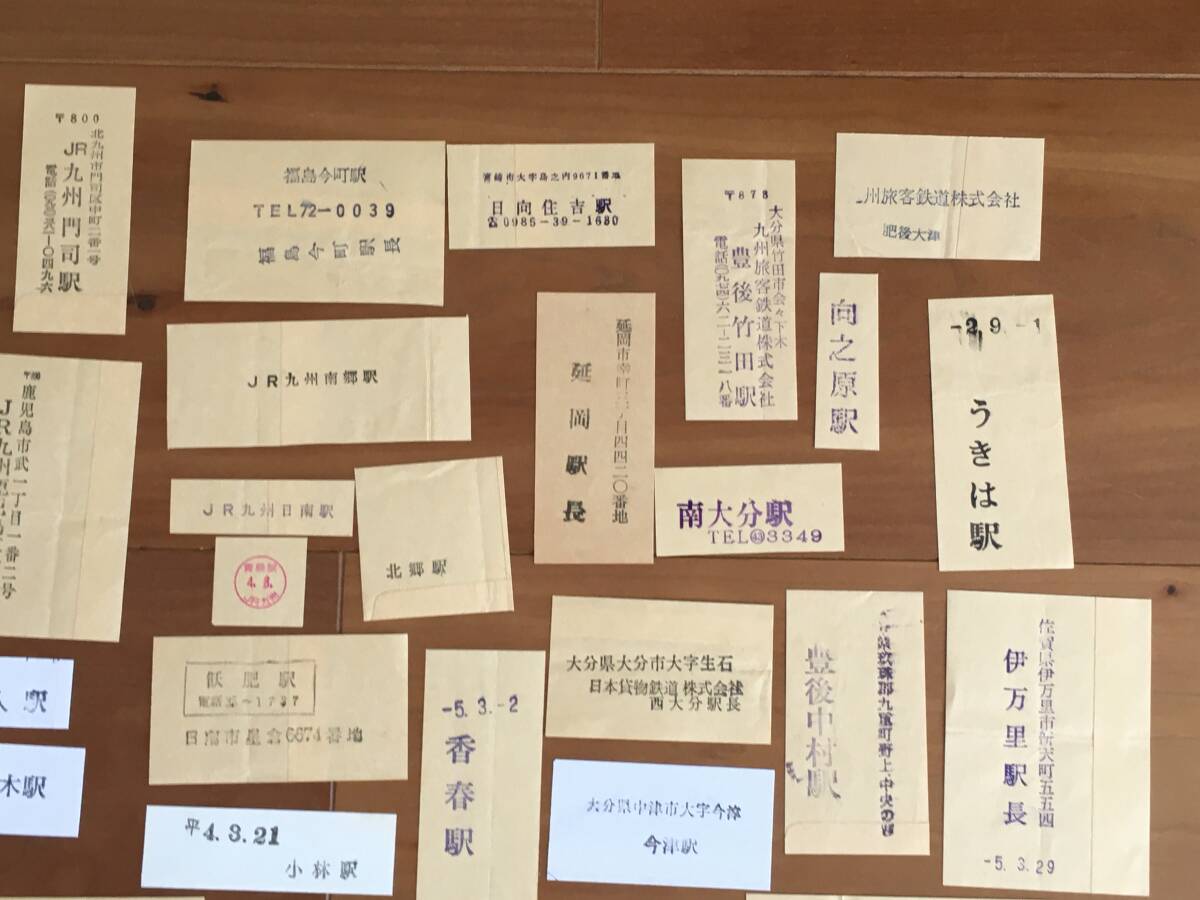 〒800
北九州市門司区中町二番一号
JR九州門司駅
福島今町駅
TEL72-0039
福島今町駅長
宮崎市大字島之内9671番地
日向住吉駅
☎0985-39-1680
〒878
大分県竹田市会々下木
九州旅客鉄道株式会社
豊後竹田駅
電話(〇九七四)六二-二三一八番
州旅客鉄道株式会社
肥後大津
向之原駅
-2.9.-1
うきは駅
JR九州南郷駅
延岡駅長
鹿児島市武一丁目一番二号
JR九州
JR九州日南駅
北郷駅
4.8.
南大分駅
TEL㊸3349
飫肥駅
日南市星倉6674番地
-5.3.-2
香春駅
大分県大分市大字生石
日本貨物鉄道株式会社
西大分駅長
九重町野上・中央の
豊後中村駅
佐賀県伊万里市新天町五五四
伊万里駅長
-5.3.29
駅
木駅
平4.3.21
小林駅
大分県中津市大字今津
今津駅